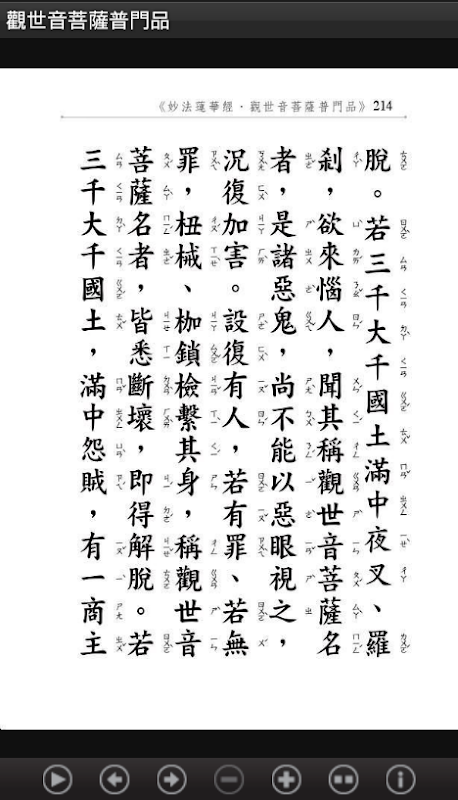 觀世音菩薩普門品
《妙法蓮華經・觀世音菩薩普門品》 214
脫。若三千大千國土滿中夜叉、羅
剎，欲來惱人，聞其稱觀世音菩薩名
者，是諸惡鬼，尚不能以惡眼視之，
況復加害。設復有人，若有罪、若無
罪，杻械、枷鎖檢繫其身，稱觀世音
菩薩名者，皆悉斷壞，即得解脫。若
三千大千國土，滿中怨賊，有一商主